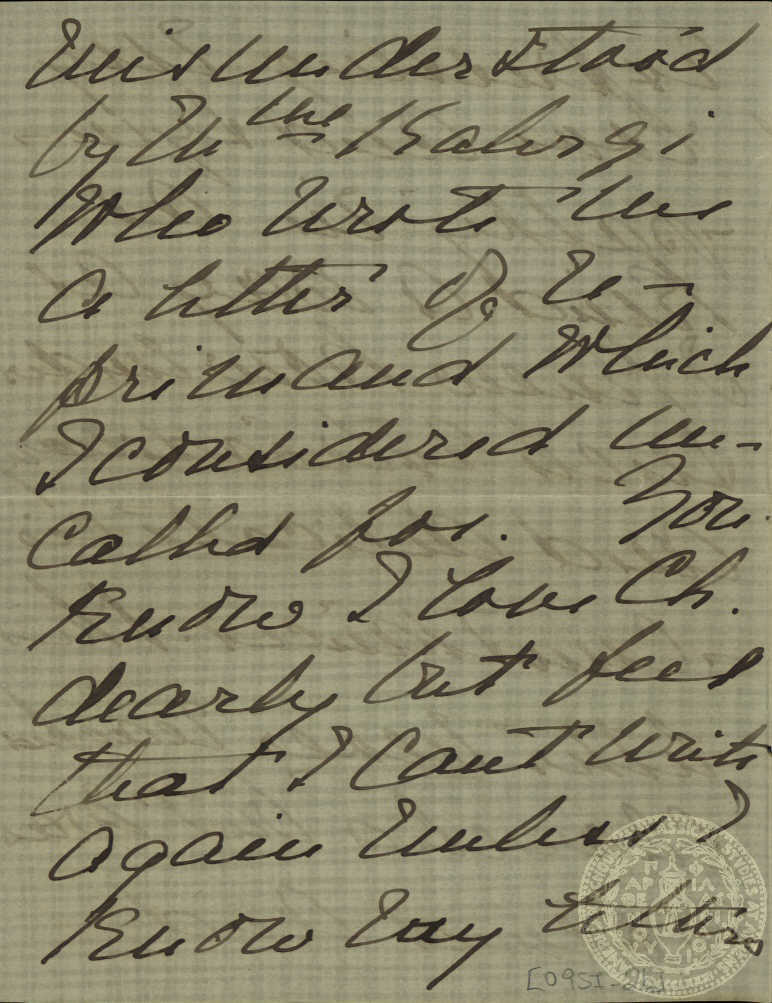 misunderstood
by Mme Kalergi
who wrote me
a letter of re-
primand which
I considered un-
called for. You
know I love Ch.
dearly but feel
that I cant write
again unless I
know my letters